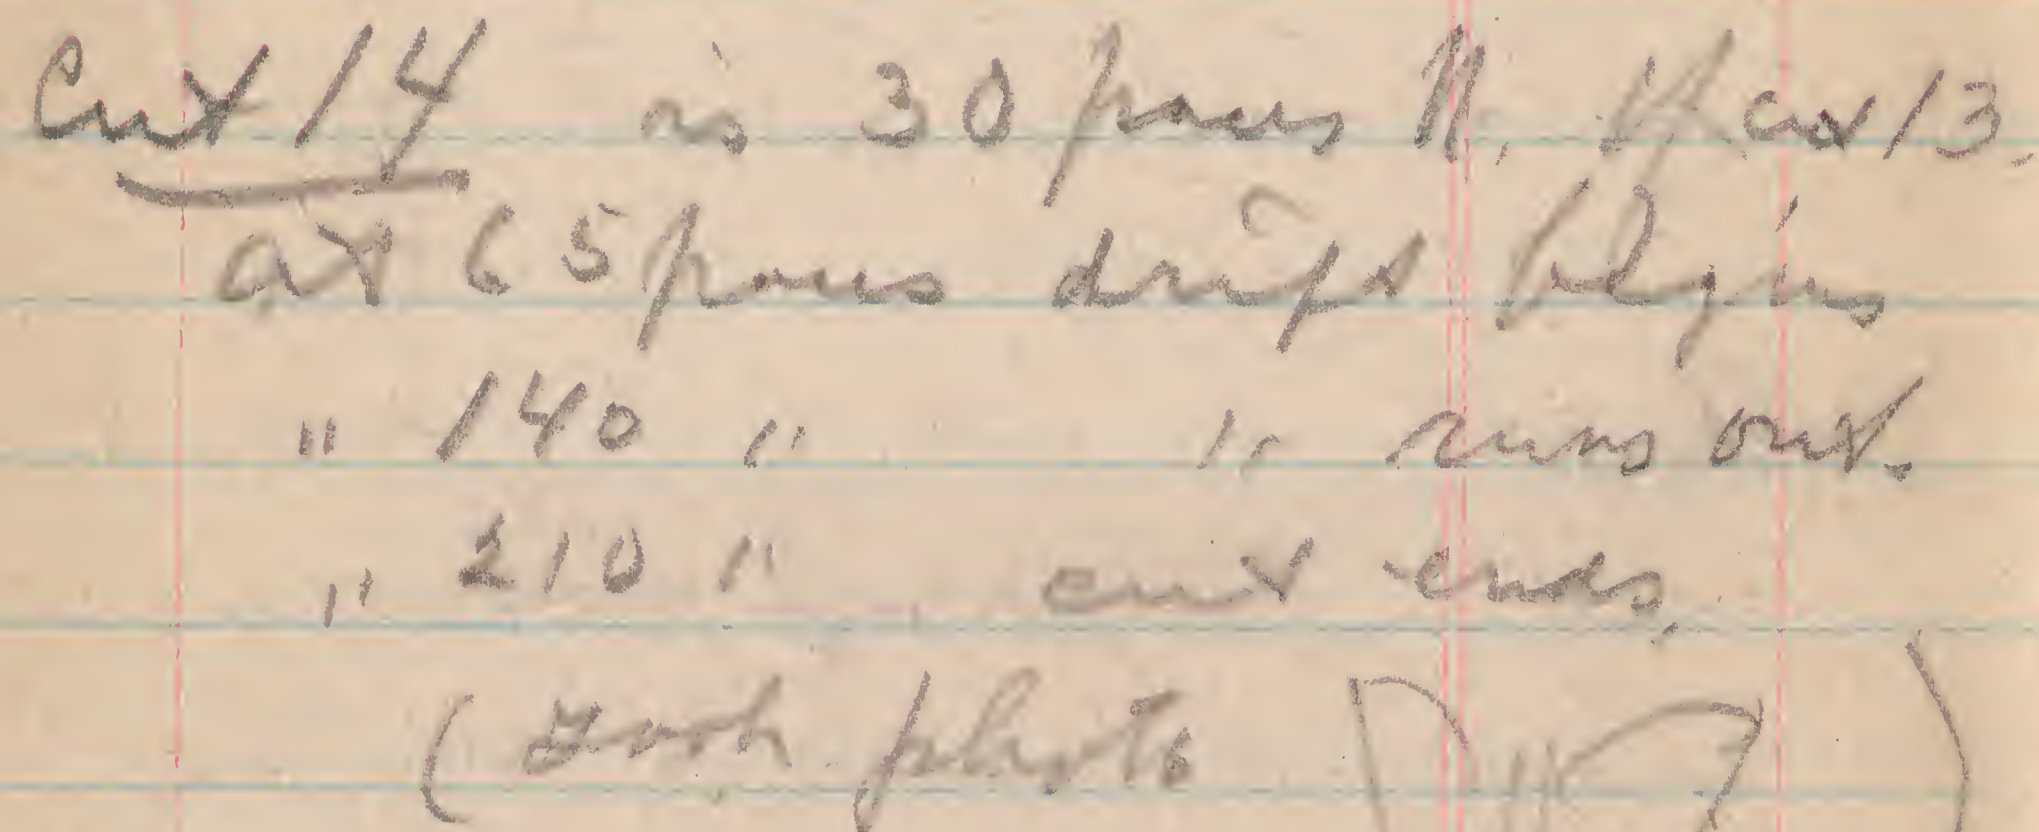 Cut 14 is 30 paces N. of cut 13.
at 65 paces drift begins
" 140 " " runs out.
" 210 " cut ends.
(took photo